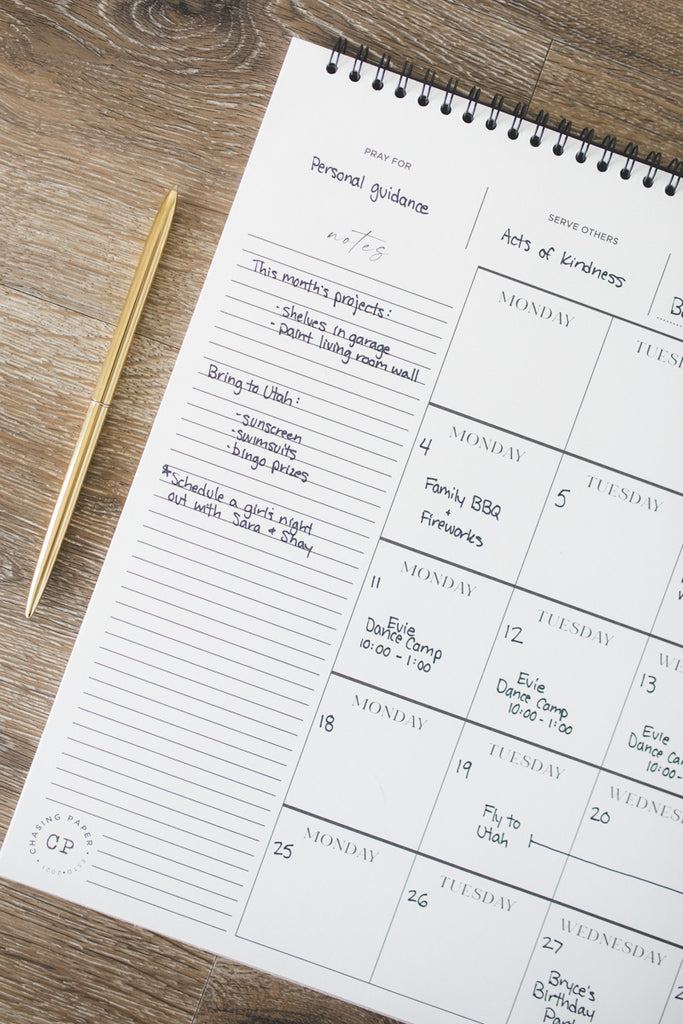 PRAY FOR
Personal guidance
SERVE OTHERS
Acts of Kindness
notes
This month's projects:
- shelves in garage
- paint living room wall
Bring to Utah:
- sunscreen
- swimsuits
- bingo prizes
*Schedule a girl's night
out with Sara + Shay
MONDAY
4 MONDAY
Family BBQ
+
Fireworks
5 TUESDAY
11 MONDAY
Evie
Dance Camp
10:00 - 1:00
12 TUESDAY
Evie
Dance Camp
10:00 - 1:00
13
Evie
Dance
10:00 -
18 MONDAY
19 TUESDAY
Fly to
Utah
20
25 MONDAY
26 TUESDAY
27 WEDNESDAY
Bryce's
Birthday
CHASING PAPER
CP
ESTD 2021